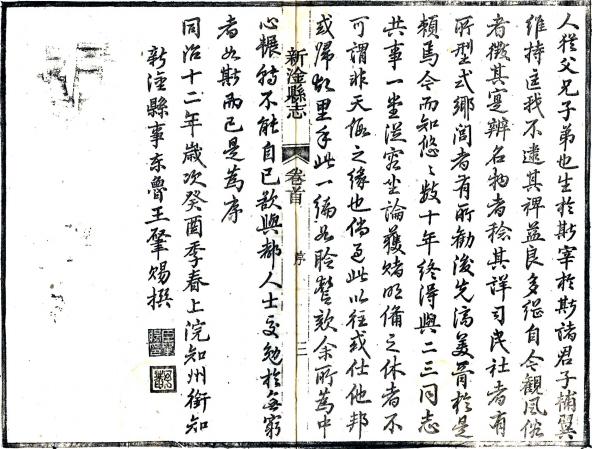 人猶父兄子弟也生於斯宰於斯諸君子輔翼
維持匡我不逮其裨益良多從自今觀風俗
者徵其寔辨名物者稔其詳司民社者有
所型式鄉閭者有所勸後先濟美胥於是
賴焉今而知悠悠數十年終得與二三同志
共事一堂從容坐論獲睹明備之休者不
可謂非天假之緣也倘過此以往或仕他邦
或歸故里手此一編如聆謦欬余所為中
心輾轉不能自已欲與都人士交勉於無窮
者如斯而已是為序
同治十二年歲次癸酉季春上浣知州銜知
新淦縣事東魯王肇賜撰
新淦縣志
卷首
序
三